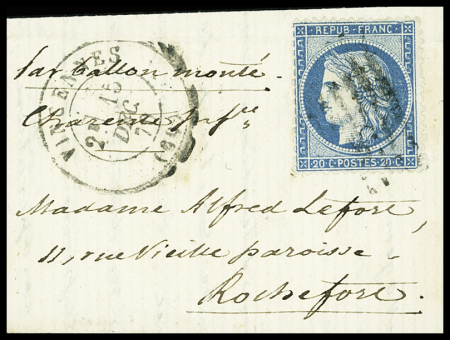 REPUB·FRANC·
par Ballon monté
VINCENNES
2E
15
DEC
Charente Infre
20·C·POSTES·20·C·
Madame Alfred Lefort,
11, rue Vieille paroisse
Rochefort.